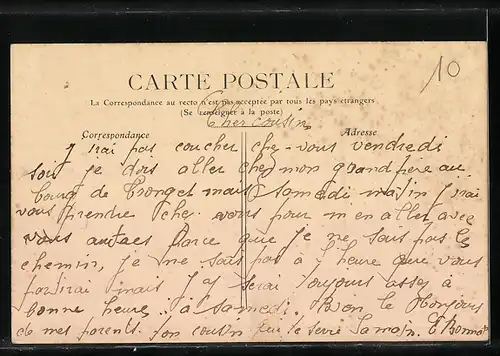 10
CARTE POSTALE
La Correspondance au recto n'est pas acceptée par tous les pays étrangers
(Se renseigner à la poste)
Cher cousin
Correspondance Adresse
J irai pas coucher chez-vous vendredi
soir je dois aller chez mon grand père au
bourg de Tronget mais samedi matin J irai
vous prendre chez vous pour m en aller avec
vous autres Parce que je ne sais pas le
chemin, je ne sais pas à l heure que vous
partirai mais J y serai toujours assez à
bonne heure. à samedi. Bien le Bonjour
de mes parents. Ton cousin qui te serre la main. E. Bonnet